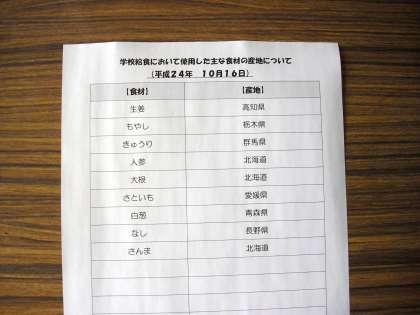 学校給食において使用した主な食材の産地について
（平成24年 10月16日）
【食材】 【産地】
生姜 高知県
もやし 栃木県
きゅうり 群馬県
人参 北海道
大根 北海道
さといも 愛媛県
白葱 青森県
なし 長野県
さんま 北海道